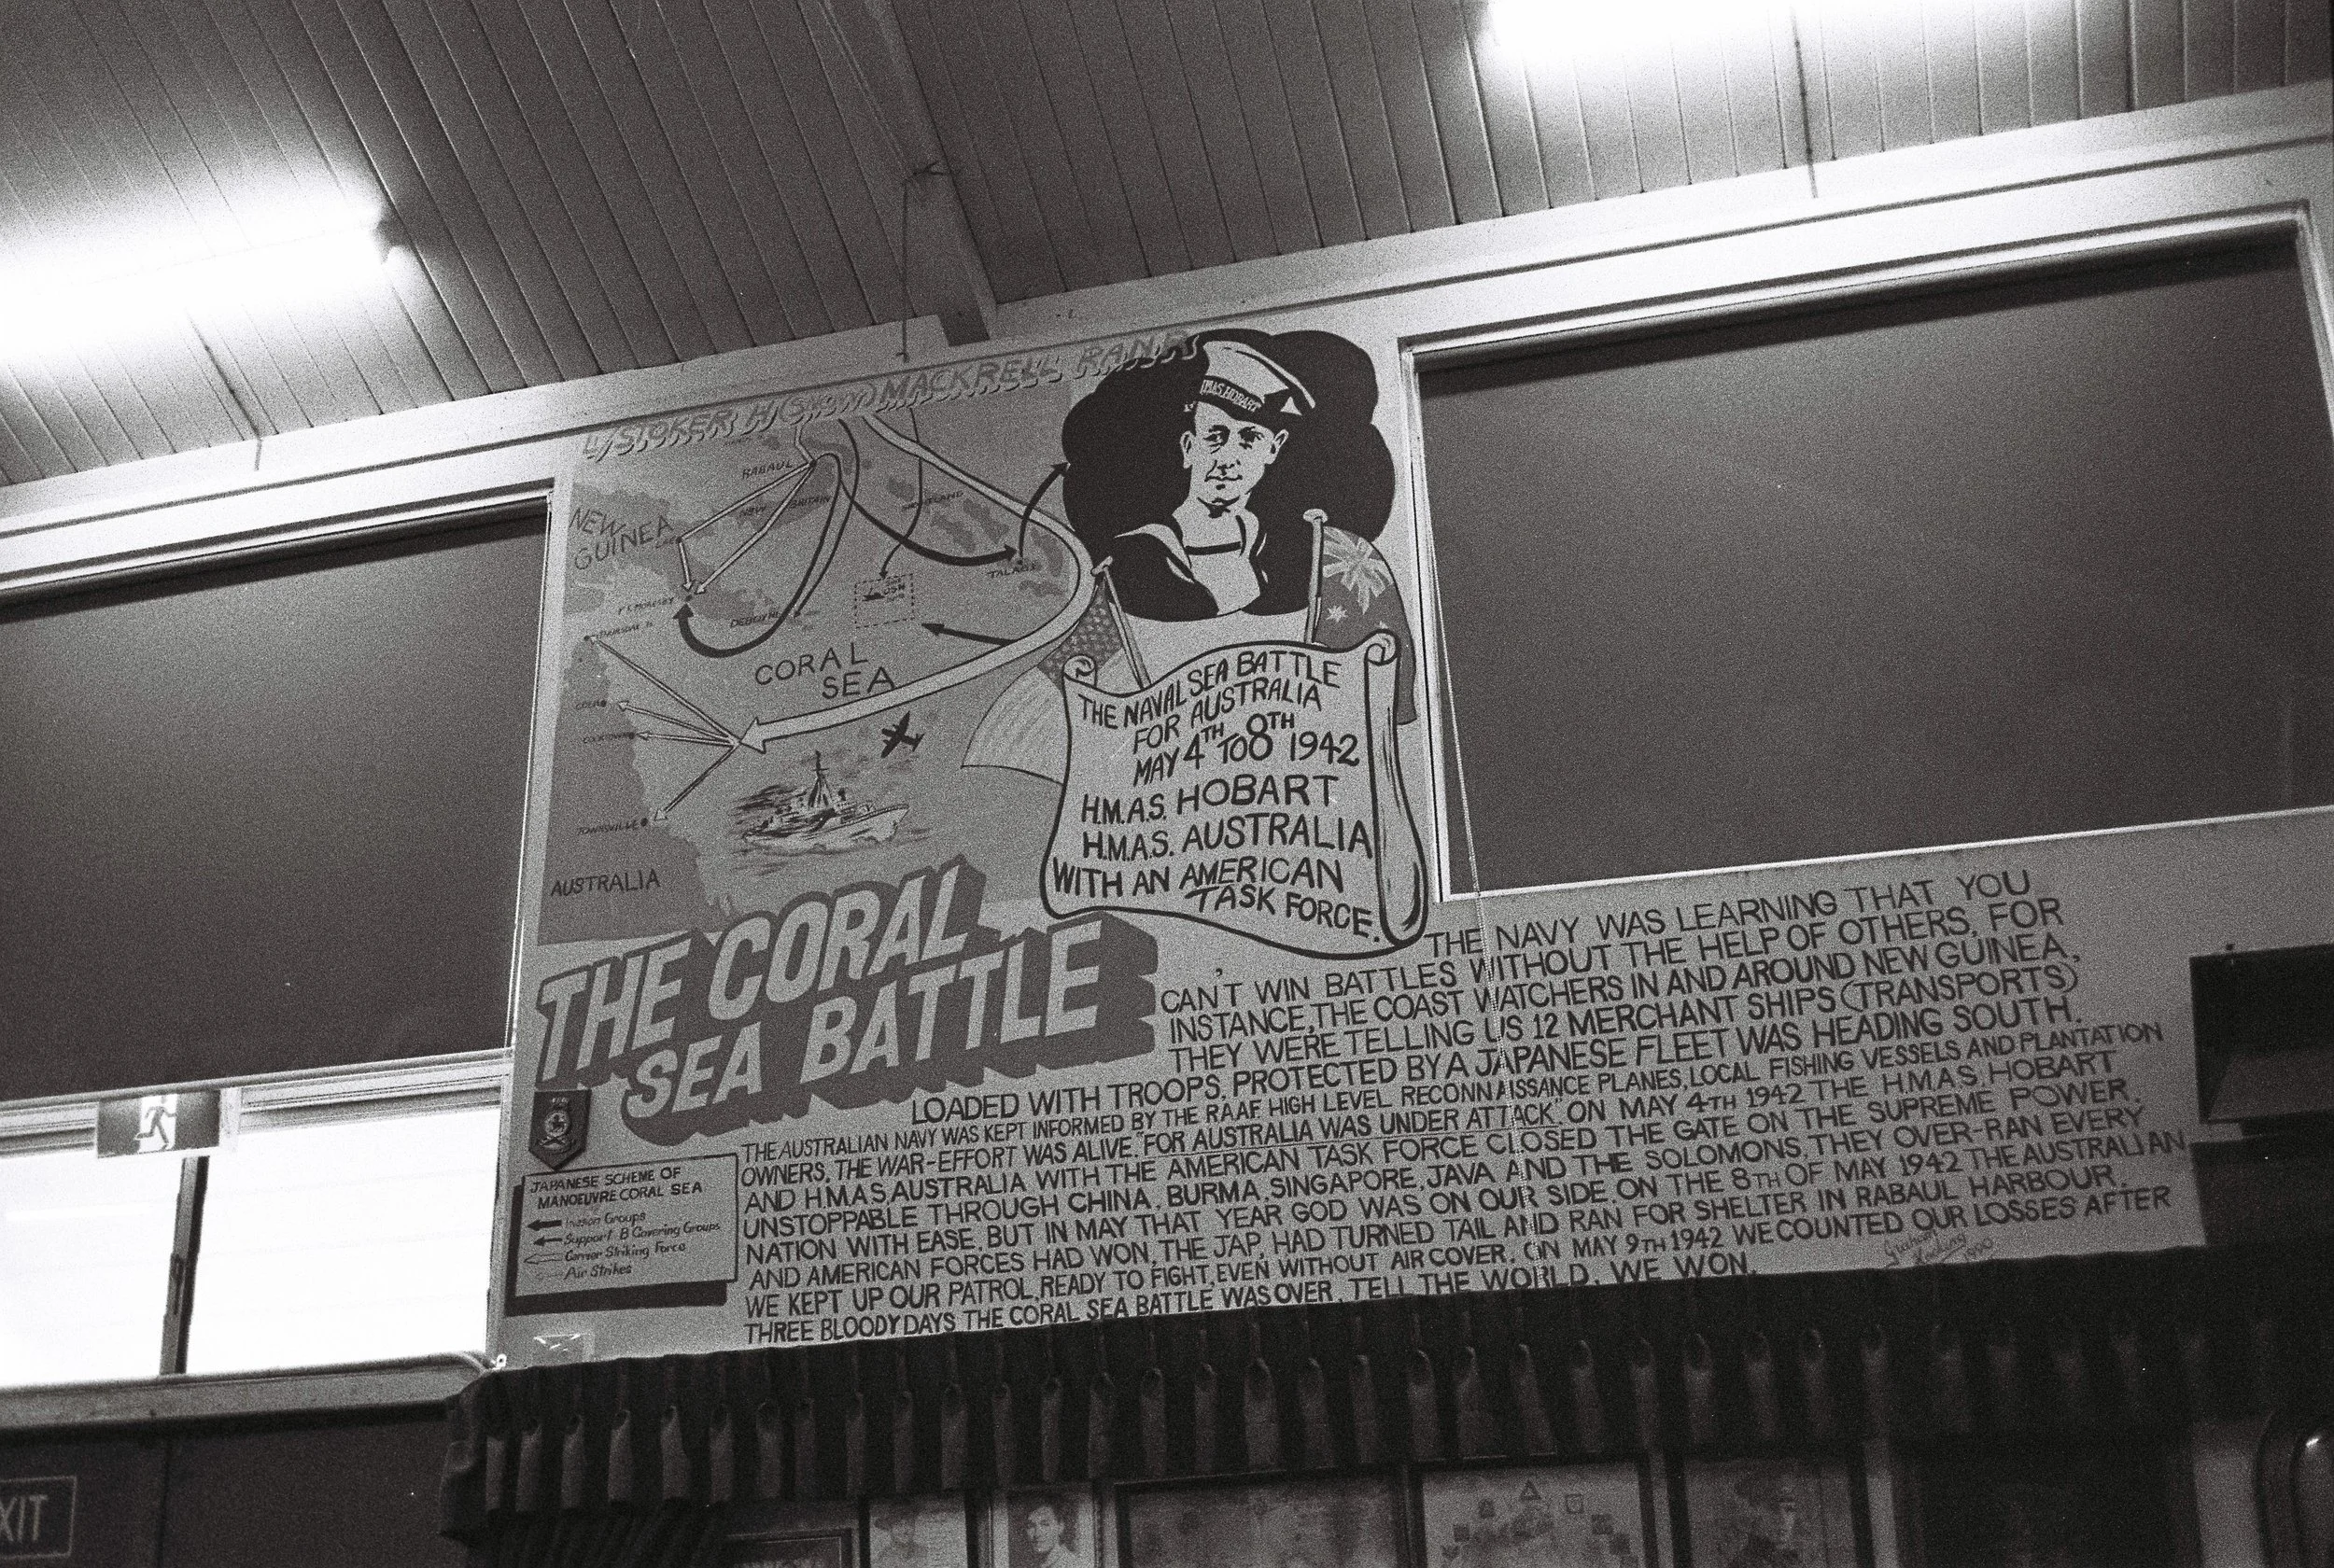 L/STOKER H (Snow) MACKRELL R.A.N.R
H.M.A.S. HOBART
RABAUL
NEW BRITAIN
NEW
GUINEA
PT. MORESBY
DEBOYNE
CORAL
SEA
COEN
COOKTOWN
TOWNSVILLE
AUSTRALIA
THE NAVAL SEA BATTLE
FOR AUSTRALIA
MAY 4TH TO 8TH 1942
H.M.A.S. HOBART
H.M.A.S. AUSTRALIA
WITH AN AMERICAN
TASK FORCE.
THE CORAL
SEA BATTLE
THE NAVY WAS LEARNING THAT YOU
CAN'T WIN BATTLES WITHOUT THE HELP OF OTHERS, FOR
INSTANCE, THE COAST WATCHERS IN AND AROUND NEW GUINEA.
THEY WERE TELLING US 12 MERCHANT SHIPS (TRANSPORTS)
LOADED WITH TROOPS, PROTECTED BY A JAPANESE FLEET WAS HEADING SOUTH.
THE AUSTRALIAN NAVY WAS KEPT INFORMED BY THE RAAF HIGH LEVEL RECONNAISSANCE PLANES, LOCAL FISHING VESSELS AND PLANTATION
OWNERS, THE WAR-EFFORT WAS ALIVE. "FOR AUSTRALIA WAS UNDER ATTACK". ON MAY 4TH 1942 THE H.M.A.S. HOBART
AND H.M.A.S. AUSTRALIA WITH THE AMERICAN TASK FORCE CLOSED THE GATE ON THE SUPREME POWER.
UNSTOPPABLE THROUGH CHINA, BURMA, SINGAPORE, JAVA AND THE SOLOMONS, THEY OVER-RAN EVERY
NATION WITH EASE, BUT IN MAY THAT YEAR GOD WAS ON OUR SIDE, ON THE 8TH OF MAY 1942 THE AUSTRALIAN
AND AMERICAN FORCES HAD WON, THE JAP, HAD TURNED TAIL AND RAN FOR SHELTER IN RABAUL HARBOUR.
WE KEPT UP OUR PATROL, READY TO FIGHT, EVEN WITHOUT AIR COVER, ON MAY 9TH 1942 WE COUNTED OUR LOSSES AFTER
THREE BLOODY DAYS THE CORAL SEA BATTLE WAS OVER, TELL THE WORLD, WE WON.
1990
JAPANESE SCHEME OF
MANOEUVRE CORAL SEA
Invasion Groups
Support & Covering Groups
Carrier Striking Force
Air Strikes
XIT